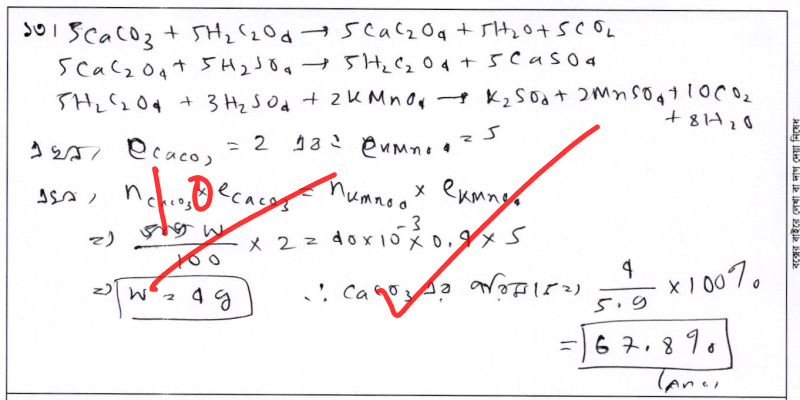 ১০। 5CaCO3 + 5H2C2O4 → 5CaC2O4 + 5H2O + 5CO2
5CaC2O4 + 5H2SO4 → 5H2C2O4 + 5CaSO4
5H2C2O4 + 3H2SO4 + 2KMnO4 → K2SO4 + 2MnSO4 + 10CO2 + 8H2O
এখন, eCaCO3 = 2 এবং eKMnO4 = 5
10
এখন, nCaCO3 × eCaCO3 = nKMnO4 × eKMnO4
⇒ W/100 × 2 = 40×10^-3 × 0.4 × 5
⇒ W = 4 g ∴ CaCO3 এর = 4/5.9 × 100%
= 67.8%
(Ans)
বক্সের বাইরে লেখা বা দাগ দেয়া নিষেধ